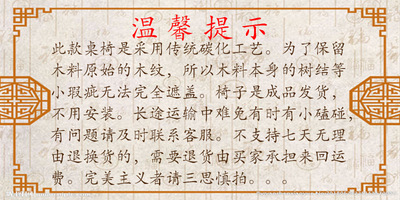 温馨提示
此款桌椅是采用传统碳化工艺。为了保留
木料原始的木纹，所以木料本身的树结等
小瑕疵无法完全遮盖。椅子是成品发货，
不用安装。长途运输中难免有时有小磕碰，
有问题请及时联系客服。不支持七天无理
由退换货的，需要退货由买家承担来回运
费。完美主义者请三思慎拍。。。